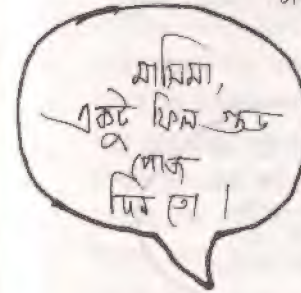 মাসিমা,
একটু ফিল গুড
পোজ
দিন তো ।